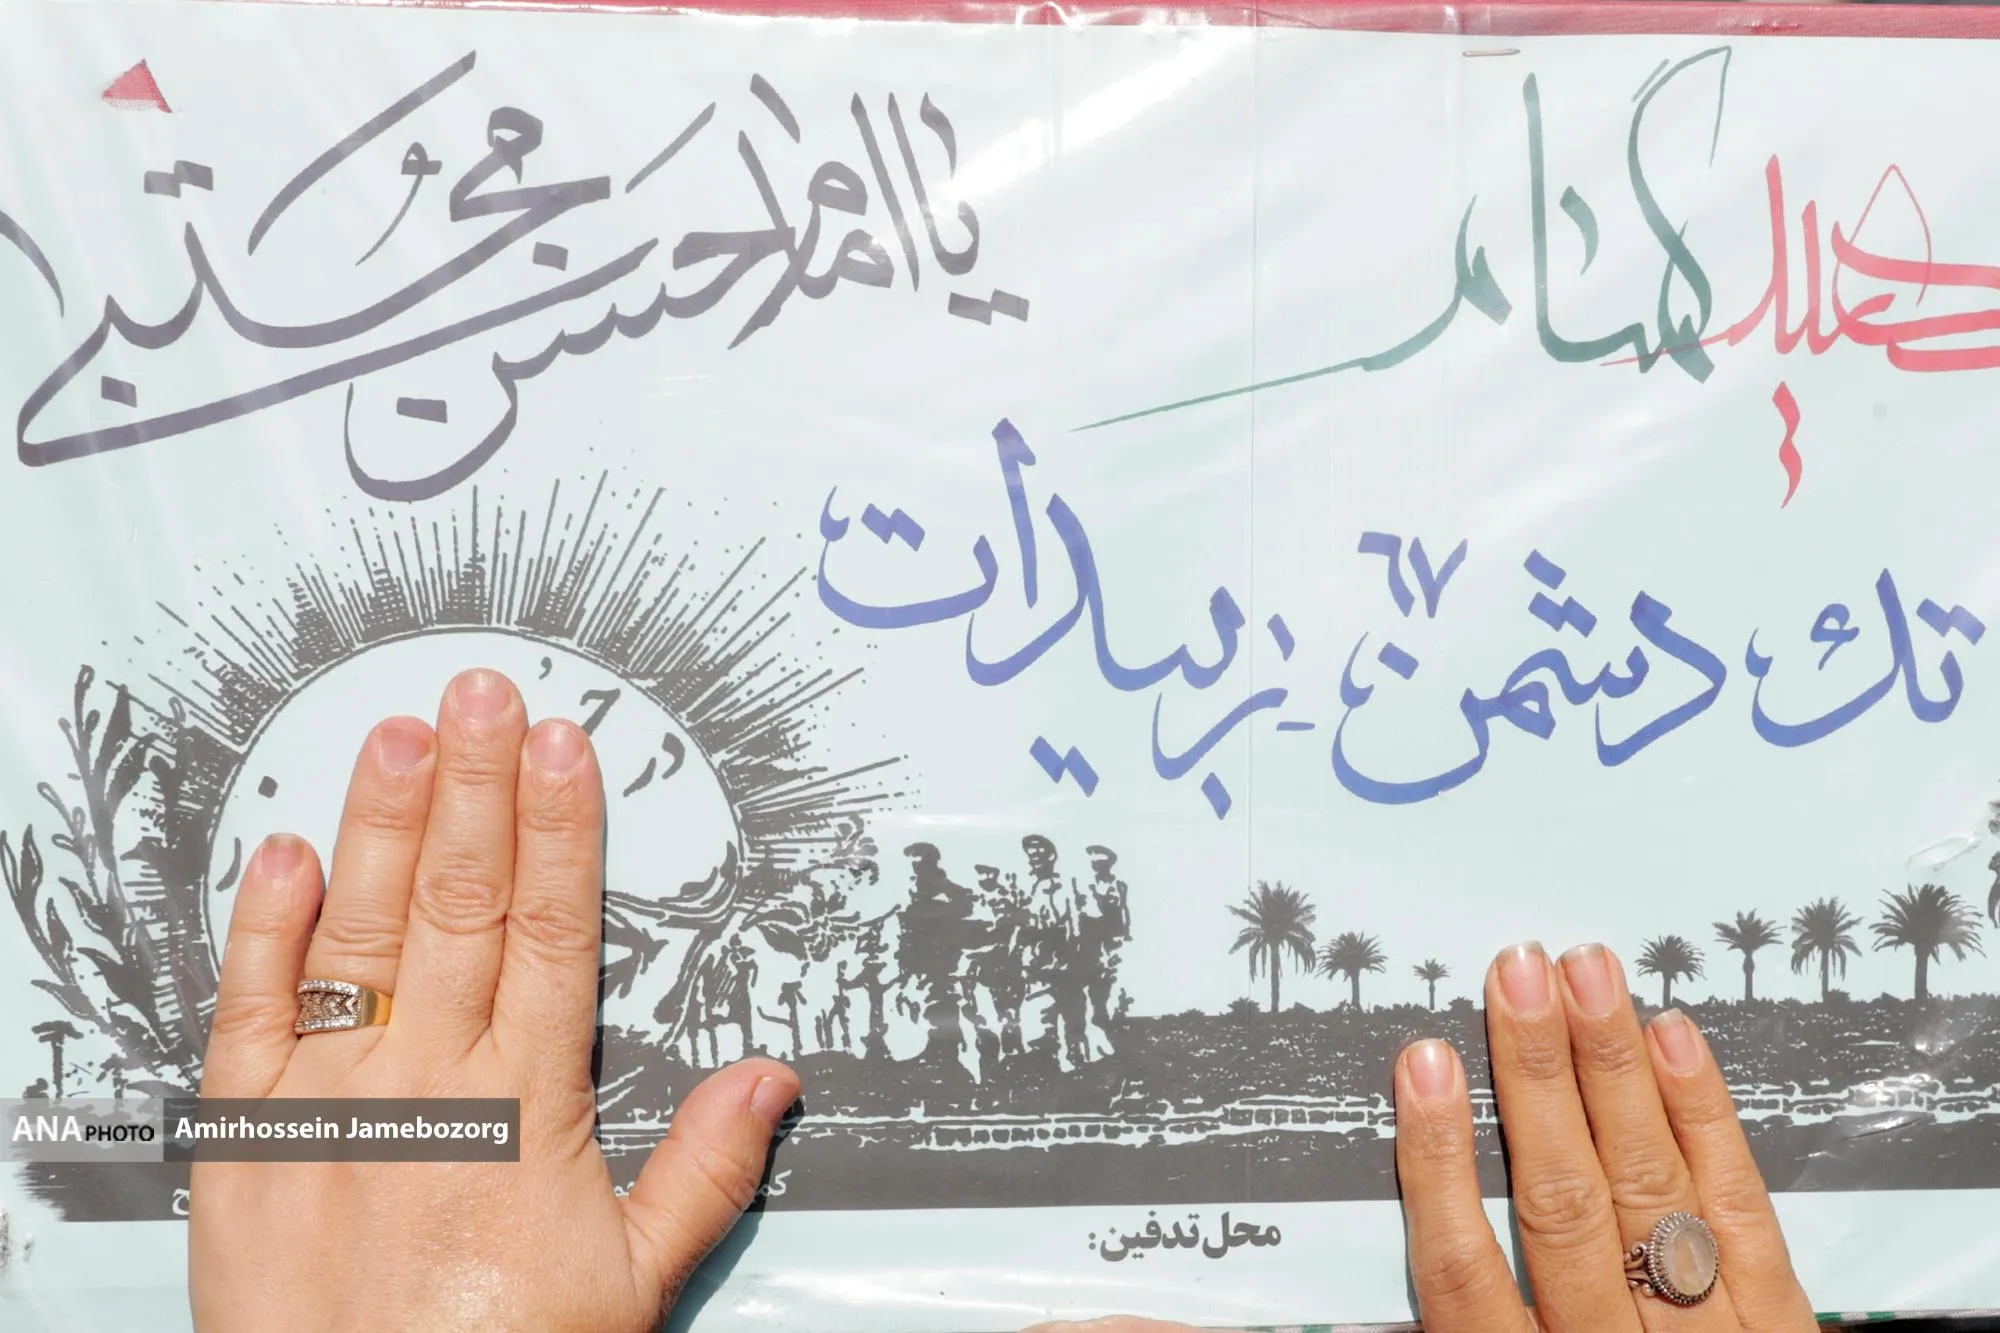 شهید گمنام
یا امام حسن مجتبی
تک دشمن ٦٧ - بربیدات
در
محل تدفین:
ANA PHOTO Amirhossein Jamebozorg